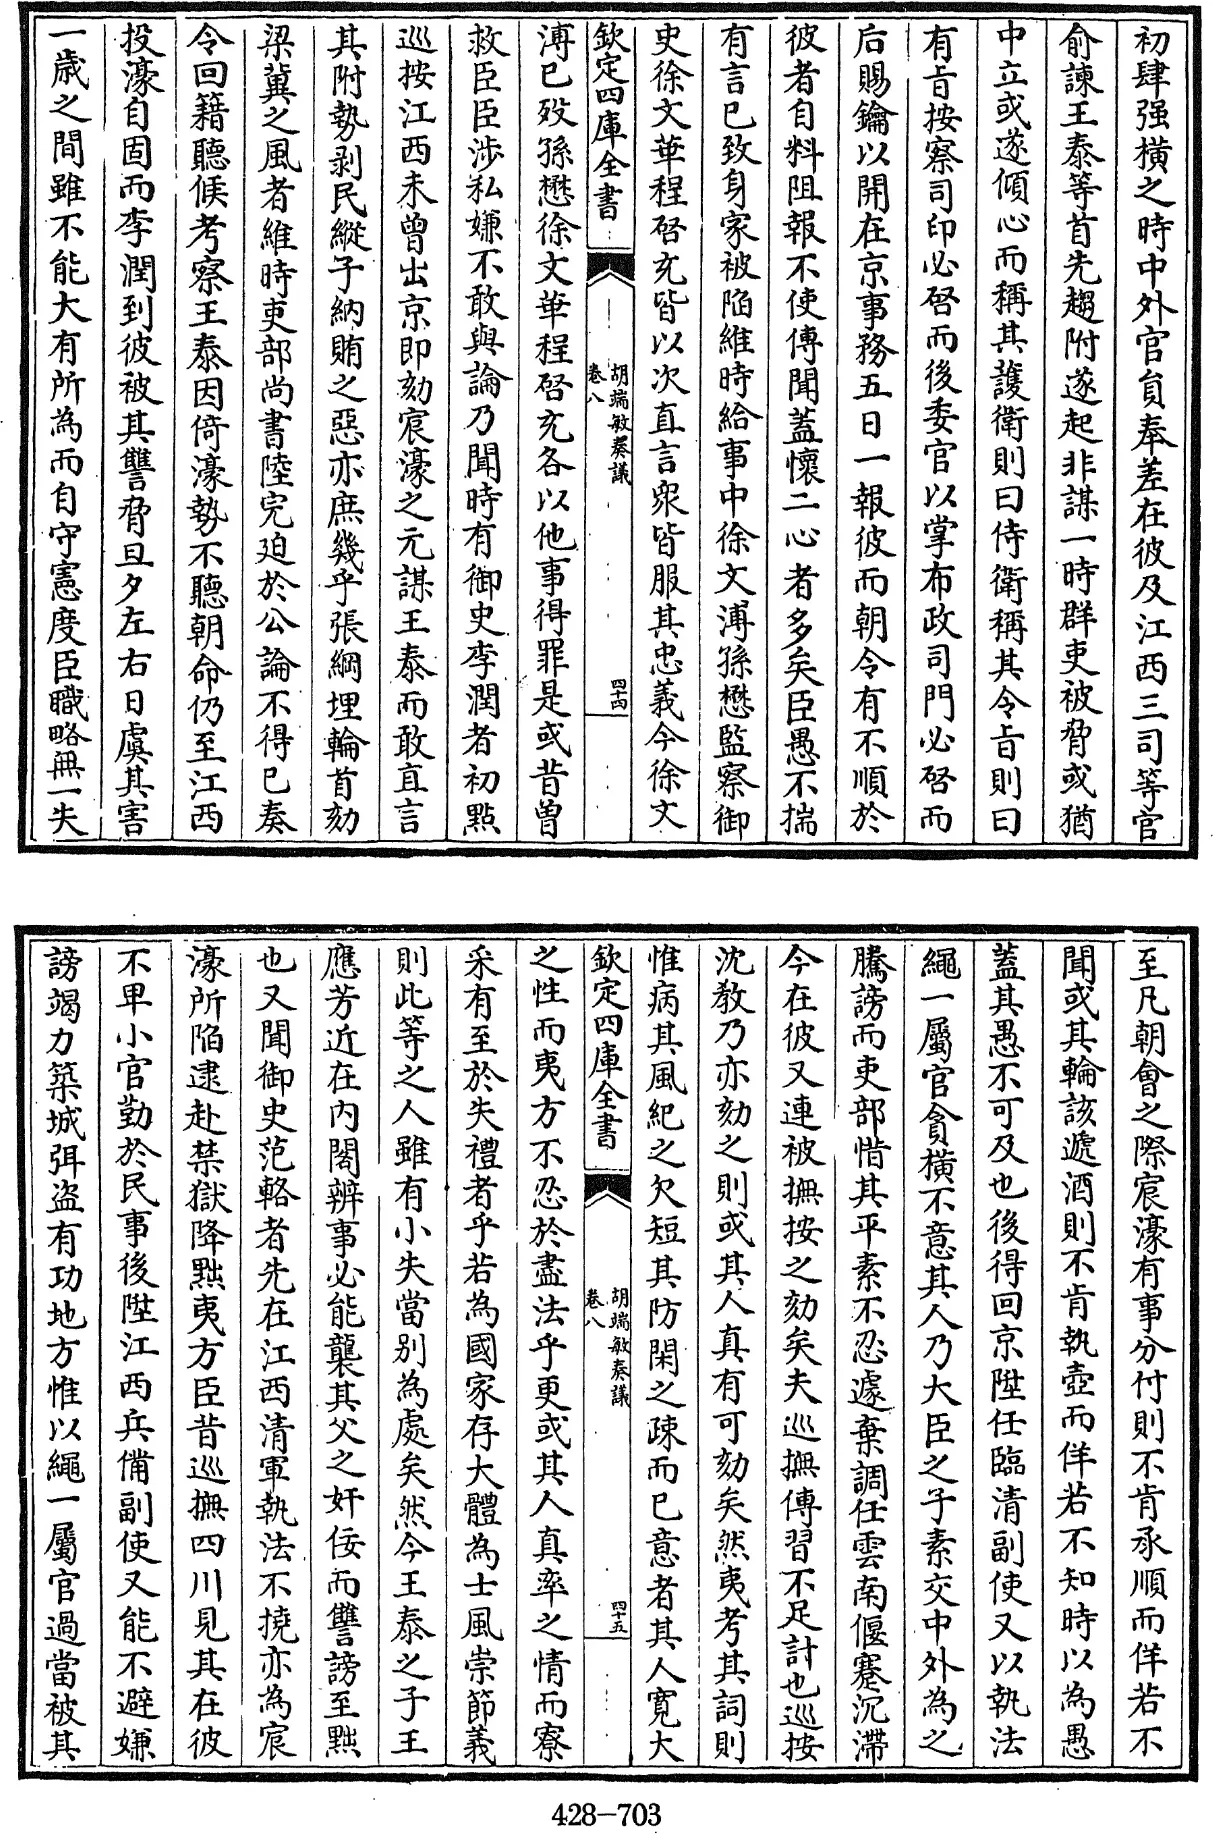 初肆强横之時中外官員奉差在彼及江西三司等官
俞諫王泰等首先趨附遂起非謀一時群吏被脅或猶
中立或遂傾心而稱其護衛則曰侍衛稱其令旨則曰
有旨按察司印必啓而後委官以掌布政司門必啓而
后賜鑰以開在京事務五日一報彼而朝令有不順於
彼者自料阻報不使傳聞蓋懷二心者多矣臣愚不揣
有言已致身家被陷維時給事中徐文溥孫懋監察御
史徐文華程啓充皆以次直言衆皆服其忠義今徐文
欽定四庫全書
胡端敏奏議
卷八
四十四
溥已歿孫懋徐文華程啓充各以他事得罪是或昔曾
救臣臣涉私嫌不敢與論乃聞時有御史李潤者初點
巡按江西未曾出京即劾宸濠之元謀王泰而敢直言
其附勢剥民縱子納賄之惡亦庶幾乎張綱埋輪首劾
梁冀之風者維時吏部尚書陸完迫於公論不得已奏
令回籍聽候考察王泰因倚濠勢不聽朝命仍至江西
投濠自固而李潤到彼被其讐脅旦夕左右日虞其害
一歲之間雖不能大有所為而自守憲度臣職略無一失
至凡朝會之際宸濠有事分付則不肯承順而佯若不
聞或其輪該遞酒則不肯執壺而佯若不知時以為愚
蓋其愚不可及也後得回京陞任臨清副使又以執法
繩一屬官貪橫不意其人乃大臣之子素交中外為之
騰謗而吏部惜其平素不忍遽棄調任雲南偃蹇沉滯
今在彼又連被撫按之劾矣夫巡撫傳習不足計也巡按
沈教乃亦劾之則或其人真有可劾矣然夷考其詞則
惟病其風紀之欠短其防閑之疎而已意者其人寬大
欽定四庫全書
胡端敏奏議
卷八
四十五
之性而夷方不忍於盡法乎更或其人真率之情而寮
采有至於失禮者乎若為國家存大體為士風崇節義
則此等之人雖有小失當别為處矣然今王泰之子王
應芳近在内閣辨事必能襲其父之奸佞而讐謗至黜
也又聞御史范輅者先在江西清軍執法不撓亦為宸
濠所陷逮赴禁獄降黜夷方臣昔巡撫四川見其在彼
不卑小官勤於民事後陞江西兵備副使又能不避嫌
謗竭力築城弭盗有功地方惟以繩一屬官過當被其
428-703